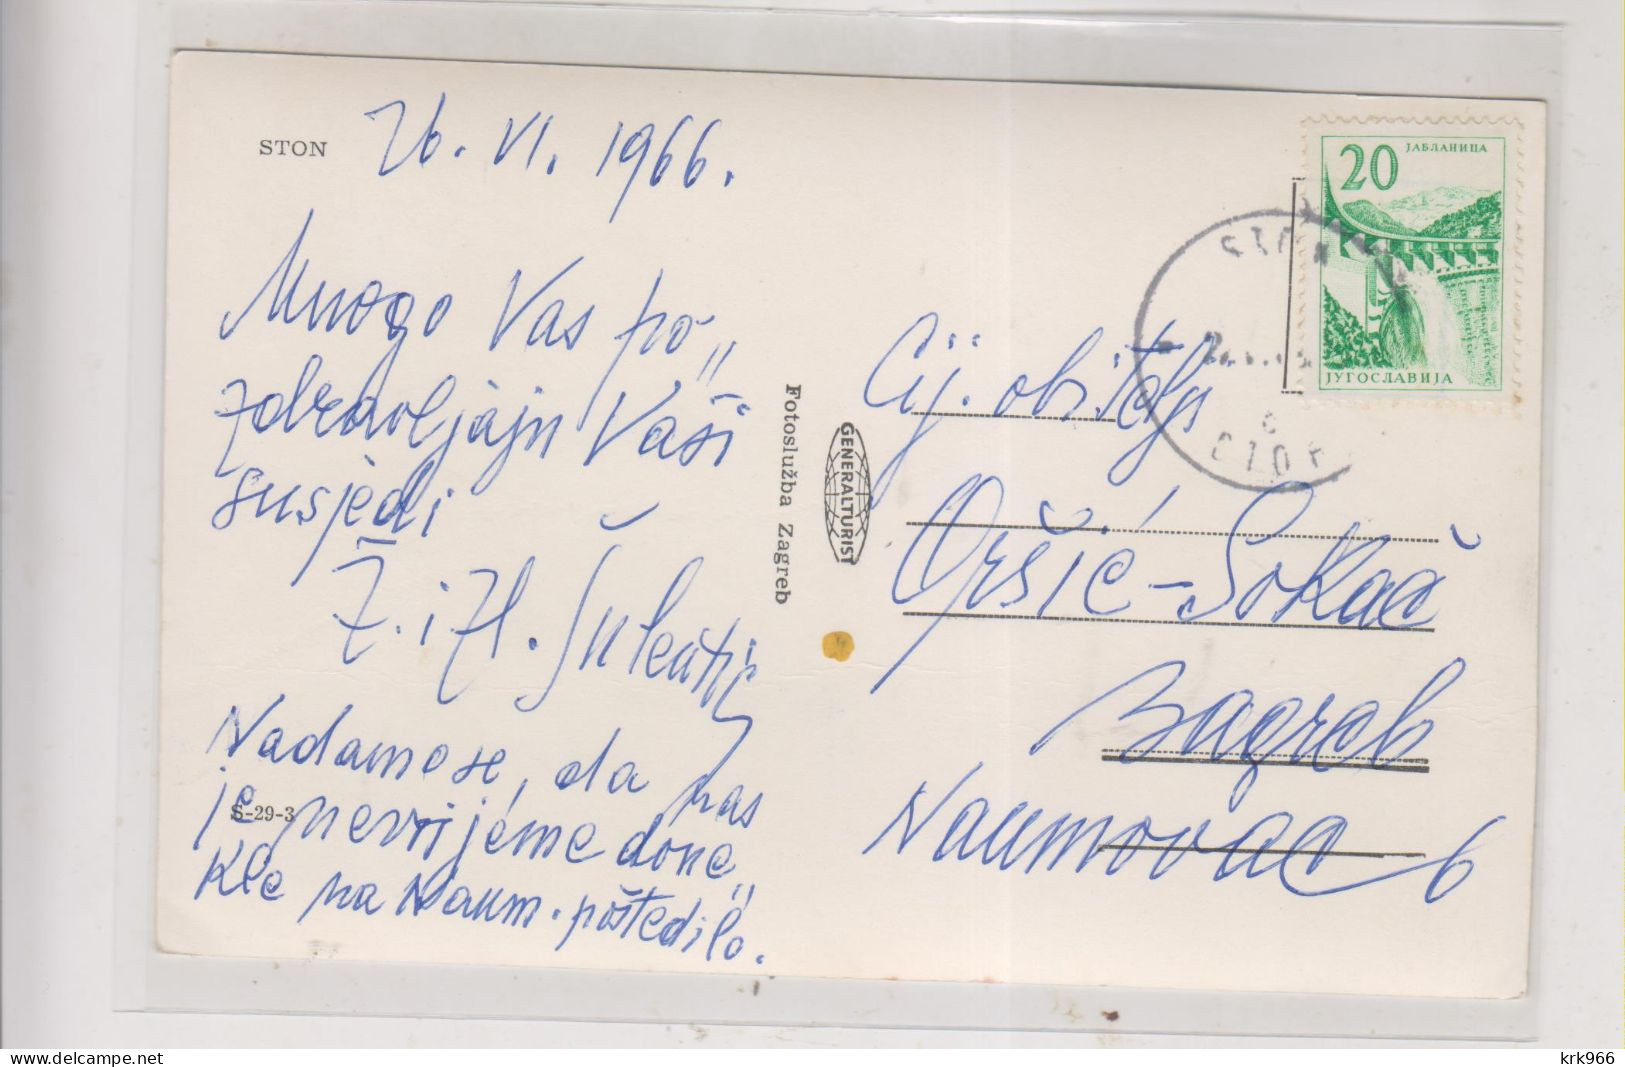 STON
26. VI. 1966.
Mnogo Vas po„
zdravljaju Vaši
susjedi
Ž. i Zl.
Nadamo se, da nas
je nevrijeme done„
kle na Naum. poštedilo.
S-29-3
Fotoslužba Zagreb
GENERALTURIST
20 ЈАБЛАНИЦА
ЈУГОСЛАВИЈА
STON
СТОН
Cij. obitelj
Oršić-Sokač
Zagreb
Naumovac 6
krk966